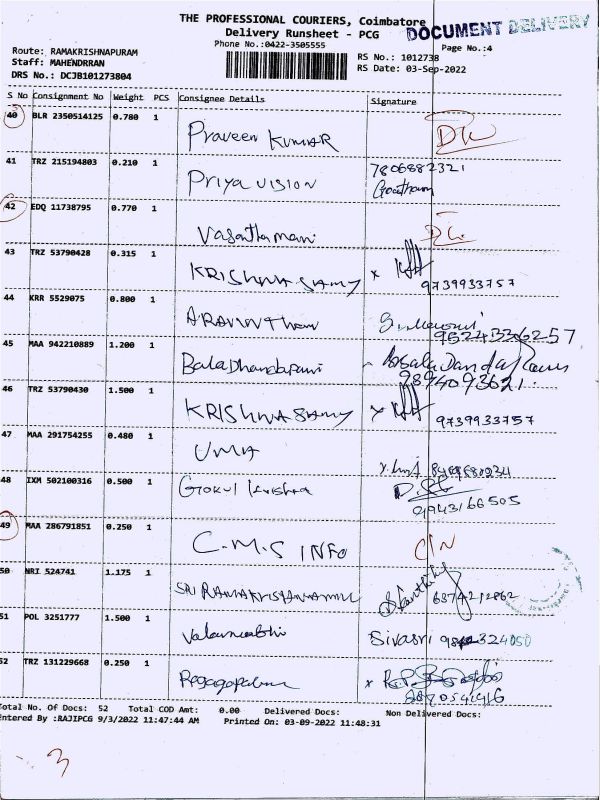 THE PROFESSIONAL COURIERS, Coimbatore
DOCUMENT DELIVERY
Delivery Runsheet - PCG
Phone No.:0422-3505555
Page No.:4
Route: RAMAKRISHNAPURAM
RS No.: 1012738
Staff: MAHENDRRAN
RS Date: 03-Sep-2022
DRS No.: DCJB101273804
S No Consignment No Weight PCS Consignee Details Signature
40 BLR 2350514125 0.780 1
Praveen KUMAR
41 TRZ 215194803 0.210 1 7806882321
Priya VISION Goutham
42 EDQ 11738795 0.770 1
Vasanthamani
43 TRZ 53790428 0.315 1
KRISHNA SAMY x 9739933757
44 KRR 5529075 0.800 1
9524336257
45 MAA 942210889 1.200 1
BalaDhandapani
9894093621
46 TRZ 53790430 1.500 1
KRISHNA SAMY x 9739933757
47 MAA 291754255 0.480 1
UMA
48 IXM 502100316 0.500 1
Gokul krishna 9943166505
49 MAA 286791851 0.250 1
C.M.S INFO
50 NRI 524741 1.175 1
SRI RAMAKRISHNA MILL 6374212862
51 POL 3251777 1.500 1
Sivasri
52 TRZ 131229668 0.250 1
x
Total No. Of Docs: 52 Total COD Amt: 0.00 Delivered Docs: Non Delivered Docs:
Entered By :RAJIPCG 9/3/2022 11:47:44 AM Printed On: 03-09-2022 11:48:31
3